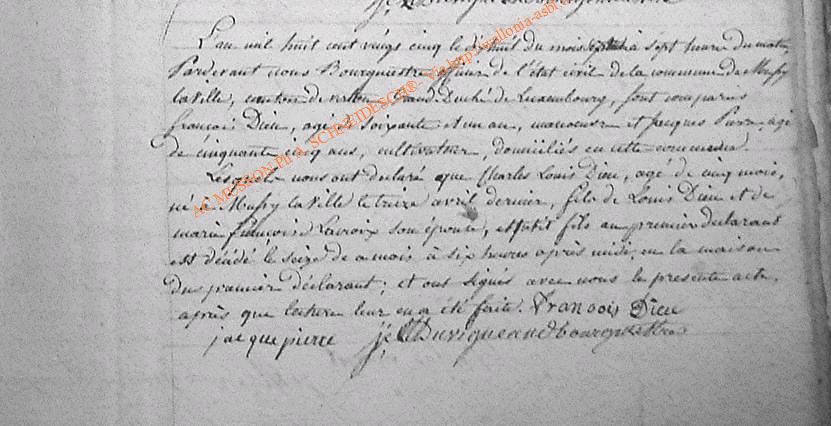 L'an mil huit cent vingt cinq le dixhuit du mois à sept heure du matin,
Pardevant nous Bourguestre officier de l'état civil de la commune de Mussy
laville, canton de virton Grand Duché de Luxembourg, sont comparus
francois Dieu, agé de Soixante et un an, manoeuvre et Jacques Pierre, agé
de cinquante cinq ans, cultivateur, domiciliés en cette commune.
Lesquels nous ont declaré que Charles Louis Dieu, agé de cinq mois,
né à Mussy la ville le treize avril dernier, fils de Louis Dieu et de
marie françoise Lacroix son épouse, et petit fils au premier declarant
est décédé le seize de ce mois à six heures après midi, en la maison
du premier déclarant; et ont signés avec nous le presente acte,
après que lecture leur en a été faite. Francois Dieu
jacque pierre
AC MUSSON Ph A. SCHREIDESCH®- via wallonia-asbl